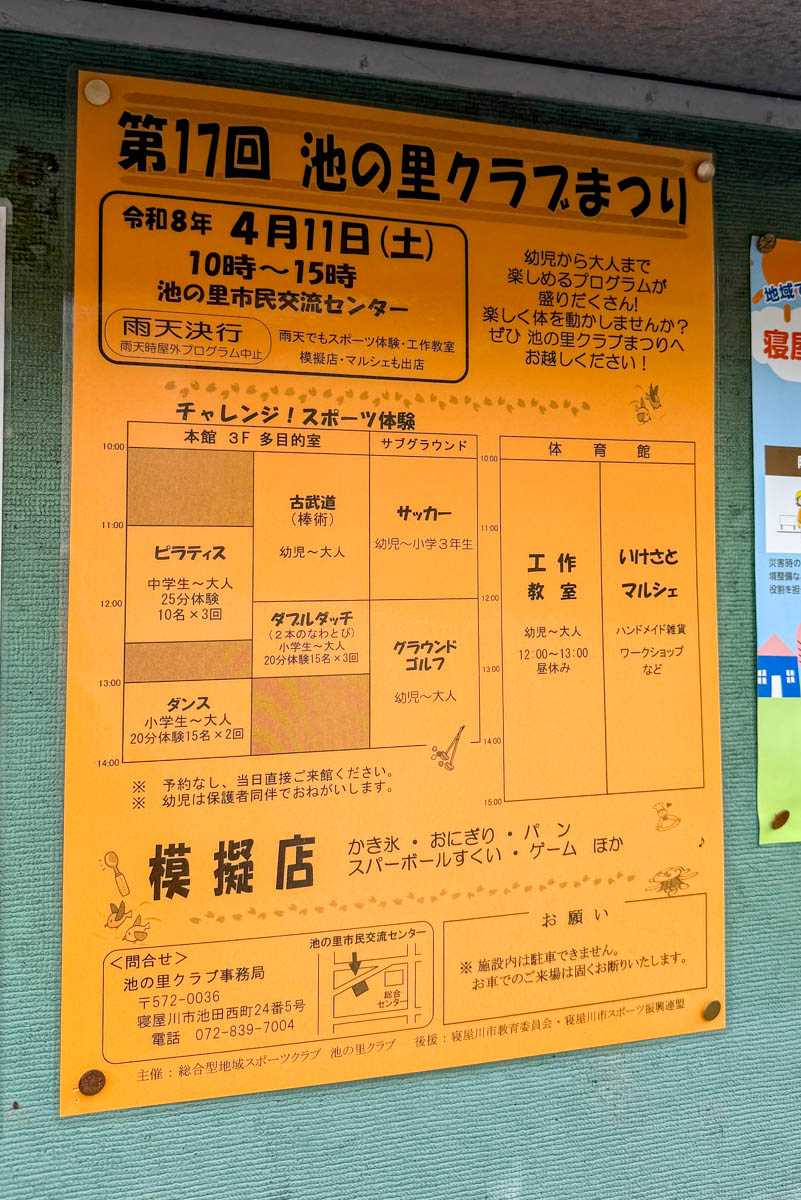 第17回 池の里クラブまつり
令和8年 4月11日(土)
10時～15時
池の里市民交流センター
雨天決行
雨天時屋外プログラム中止
雨天でもスポーツ体験・工作教室
模擬店・マルシェも出店
幼児から大人まで
楽しめるプログラムが
盛りだくさん!
楽しく体を動かしませんか?
ぜひ 池の里クラブまつりへ
お越しください!
チャレンジ!スポーツ体験
本館 3F 多目的室
サブグラウンド
10:00
11:00
12:00
13:00
14:00
ピラティス
中学生～大人
25分体験
10名×3回
ダンス
小学生～大人
20分体験15名×2回
古武道
(棒術)
幼児～大人
ダブルダッチ
(2本のなわとび)
小学生～大人
20分体験15名×3回
サッカー
幼児～小学3年生
グラウンド
ゴルフ
幼児～大人
体育館
10:00
11:00
12:00
13:00
14:00
15:00
工作
教室
幼児～大人
12:00～13:00
昼休み
いけさと
マルシェ
ハンドメイド雑貨
ワークショップ
など
※ 予約なし、当日直接ご来館ください。
※ 幼児は保護者同伴でおねがいします。
模擬店
かき氷・おにぎり・パン
スパーボールすくい・ゲーム ほか
<問合せ>
池の里クラブ事務局
〒572-0036
寝屋川市池田西町24番5号
電話 072-839-7004
池の里市民交流センター
総合
センター
お願い
※ 施設内は駐車できません。
お車でのご来場は固くお断りいたします。
主催:総合型地域スポーツクラブ 池の里クラブ 後援:寝屋川市教育委員会・寝屋川市スポーツ振興連盟
地域で
寝屋
災害時の
境整備な
役割を担